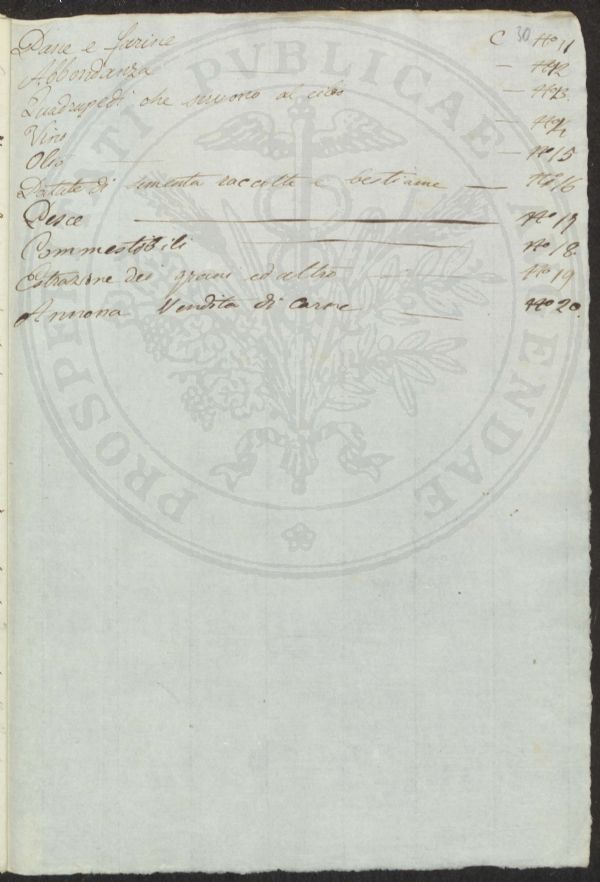 Pane e farine C 30 No 11
Abbondanza — No 12
Quadrupedi che servono al cibo — No 13.
Vino — No 14
Olio — No 15
di sementa raccolta e bestiame — No 16
Pesce — No 17
Commestibili — No 18.
Estrazione dei grani ed altro — No 19
Annona Vendita di Carne — No 20.
PROSPERITATI PVBLICAE AVGENDAE